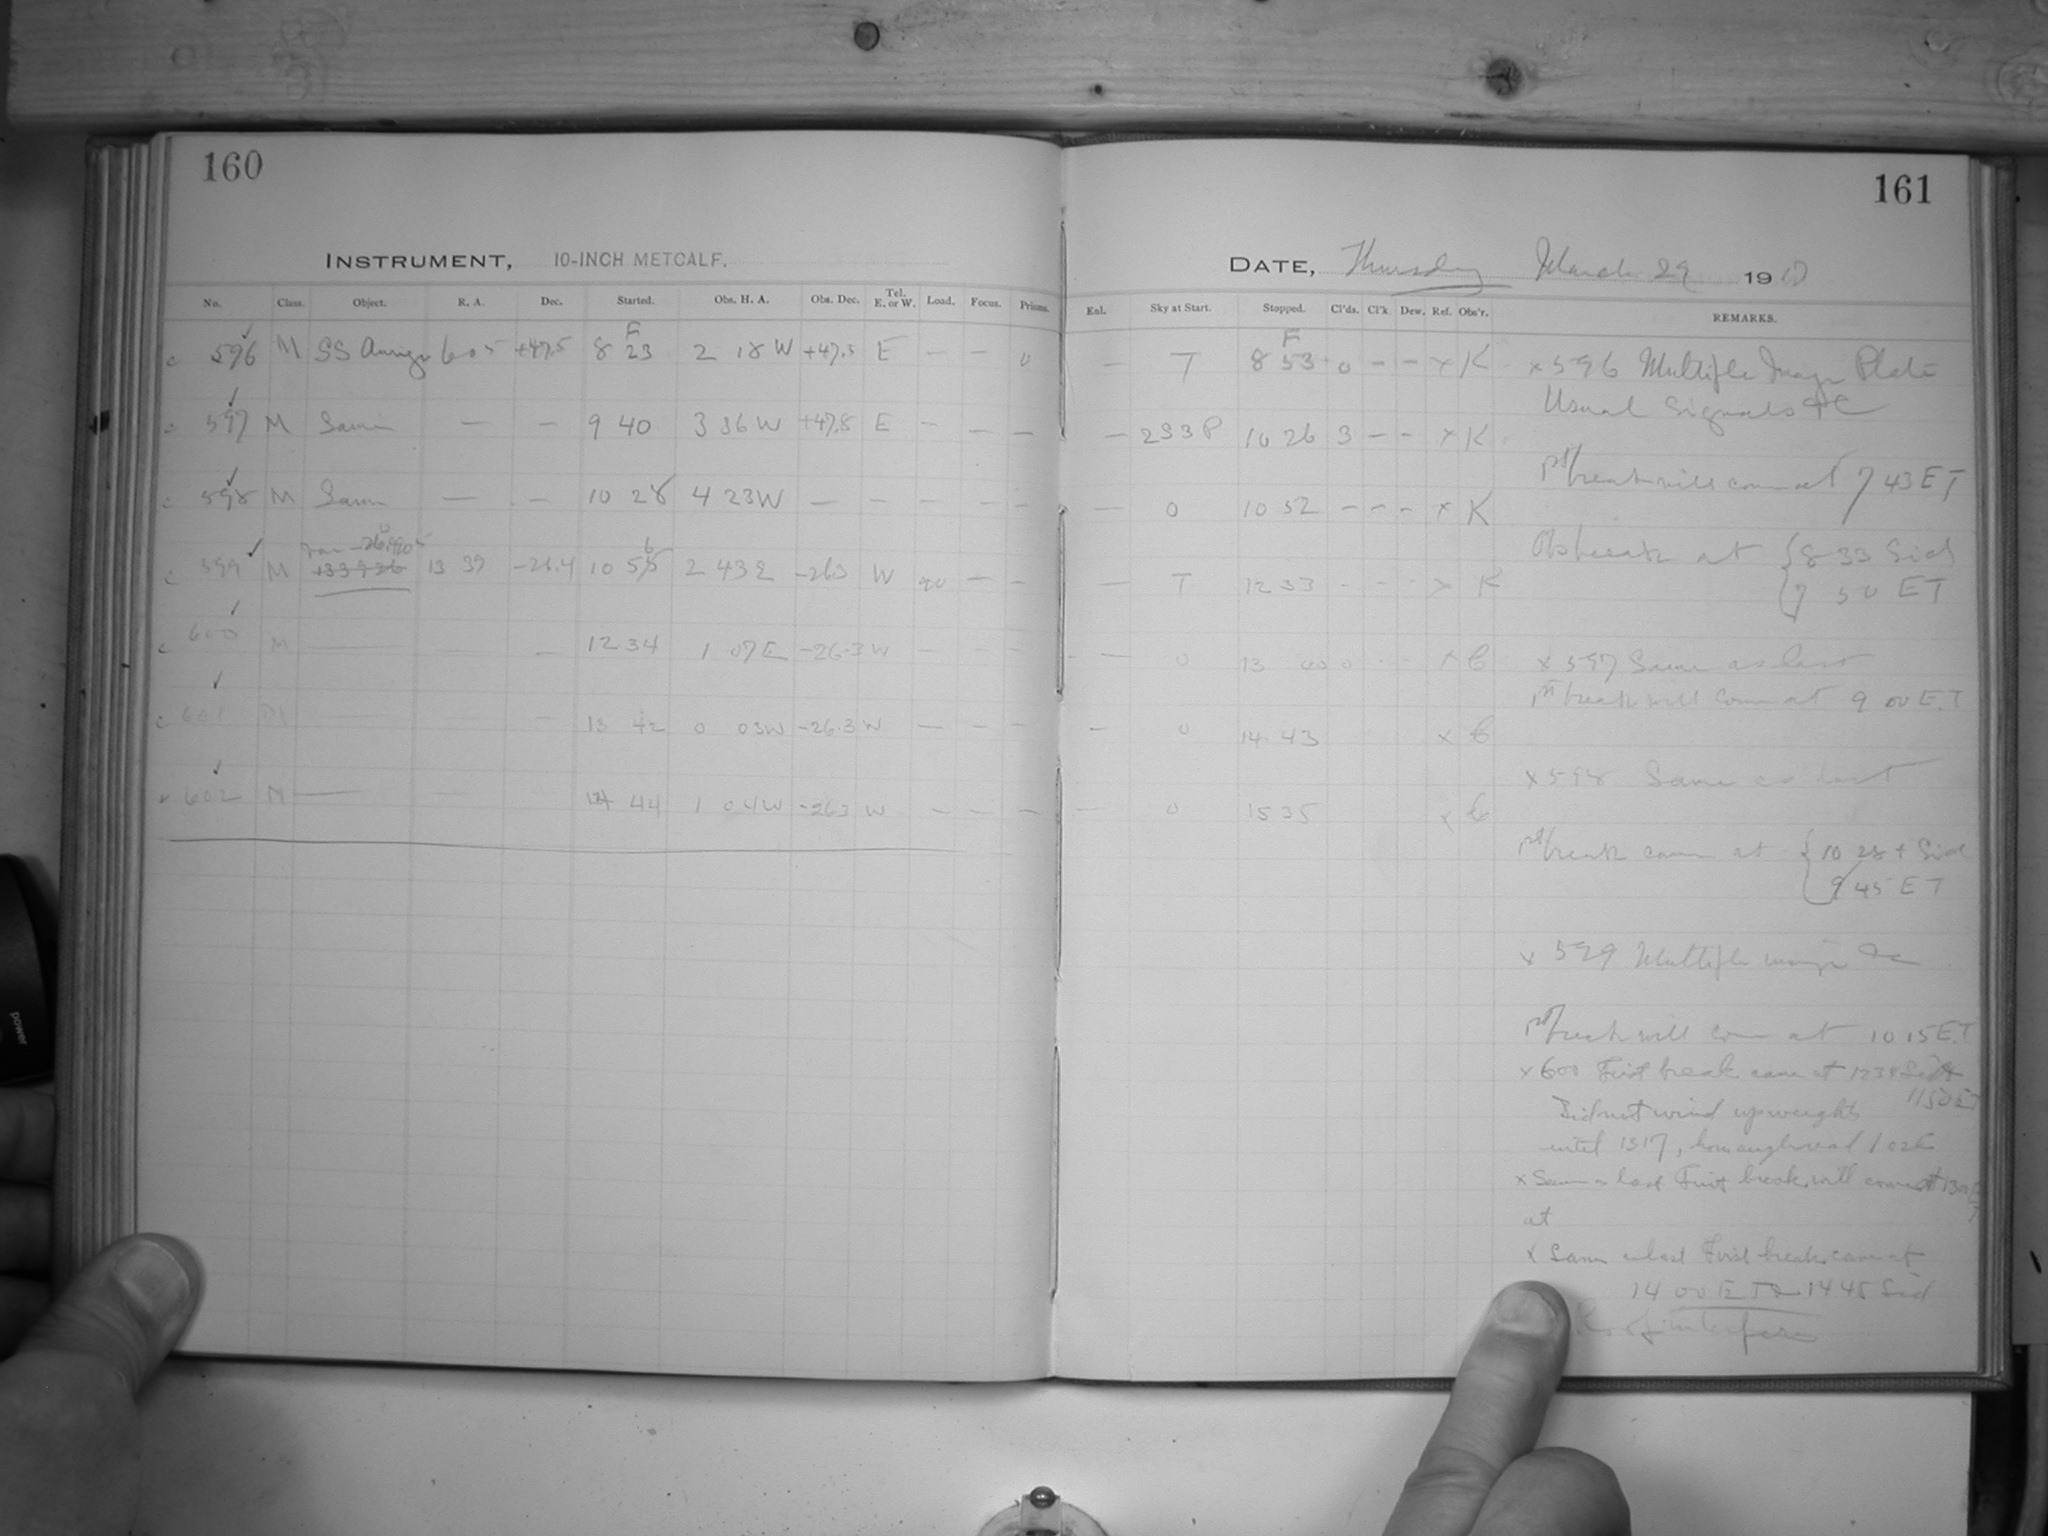 160
INSTRUMENT, 10-INCH METCALF.
No. Class. Object. R. A. Dec. Started. Obs. H. A. Obs. Dec. Tel. E. or W. Load. Focus. Prisms.
F
c 596 M SS Aurigæ 6 05 +47.5 8 23 2 18 W +47.5 E — — 0
c 597 M Same — — 9 40 3 36 W +47.8 E — — —
c 598 M Same — — 10 28 4 23 W — — — — —
c 599 M 13 39 -26.4 10 56 2 43 E -26.3 W — —
c 600 M — — — 12 34 1 07 E -26.3 W — — —
c 601 M — — — 13 42 0 03 W -26.3 W — — —
602 M — 14 44 1 04 W -26.3 W — — —
161
DATE, Thursday March 29 1917
Enl. Sky at Start. Stopped. Cl'ds. Cl'k Dew. Ref. Obs'r. REMARKS.
F
— T 8 53 0 — — x K
— 2S3P 10 26 3 — — x K
— 0 10 52 — — — x K
— T 12 33 - - - x K
— 0 13 40 0 - - x C
— 0 14 43 x C
— 0 15 35 x C
x 596 Multiple Image Plate
Usual Signals &c
1st break will come at 7 43 ET
Ob break at { 8 33 Sid
7 50 ET
x 597 Same as last
1st break will come at 9 00 E.T
x 598 Same as last
1st break came at { 10 28 + Sid
9 45 ET
x 599 Multiple image &c
1st break will come at 10 15 E.T
x 600 First break came at 1234 Sid &
1150 ET
Did not wind up weights
until 1317,
x Same as last First break will come at
at
x Same as last First break came at
14 00 ET & 14 45 Sid